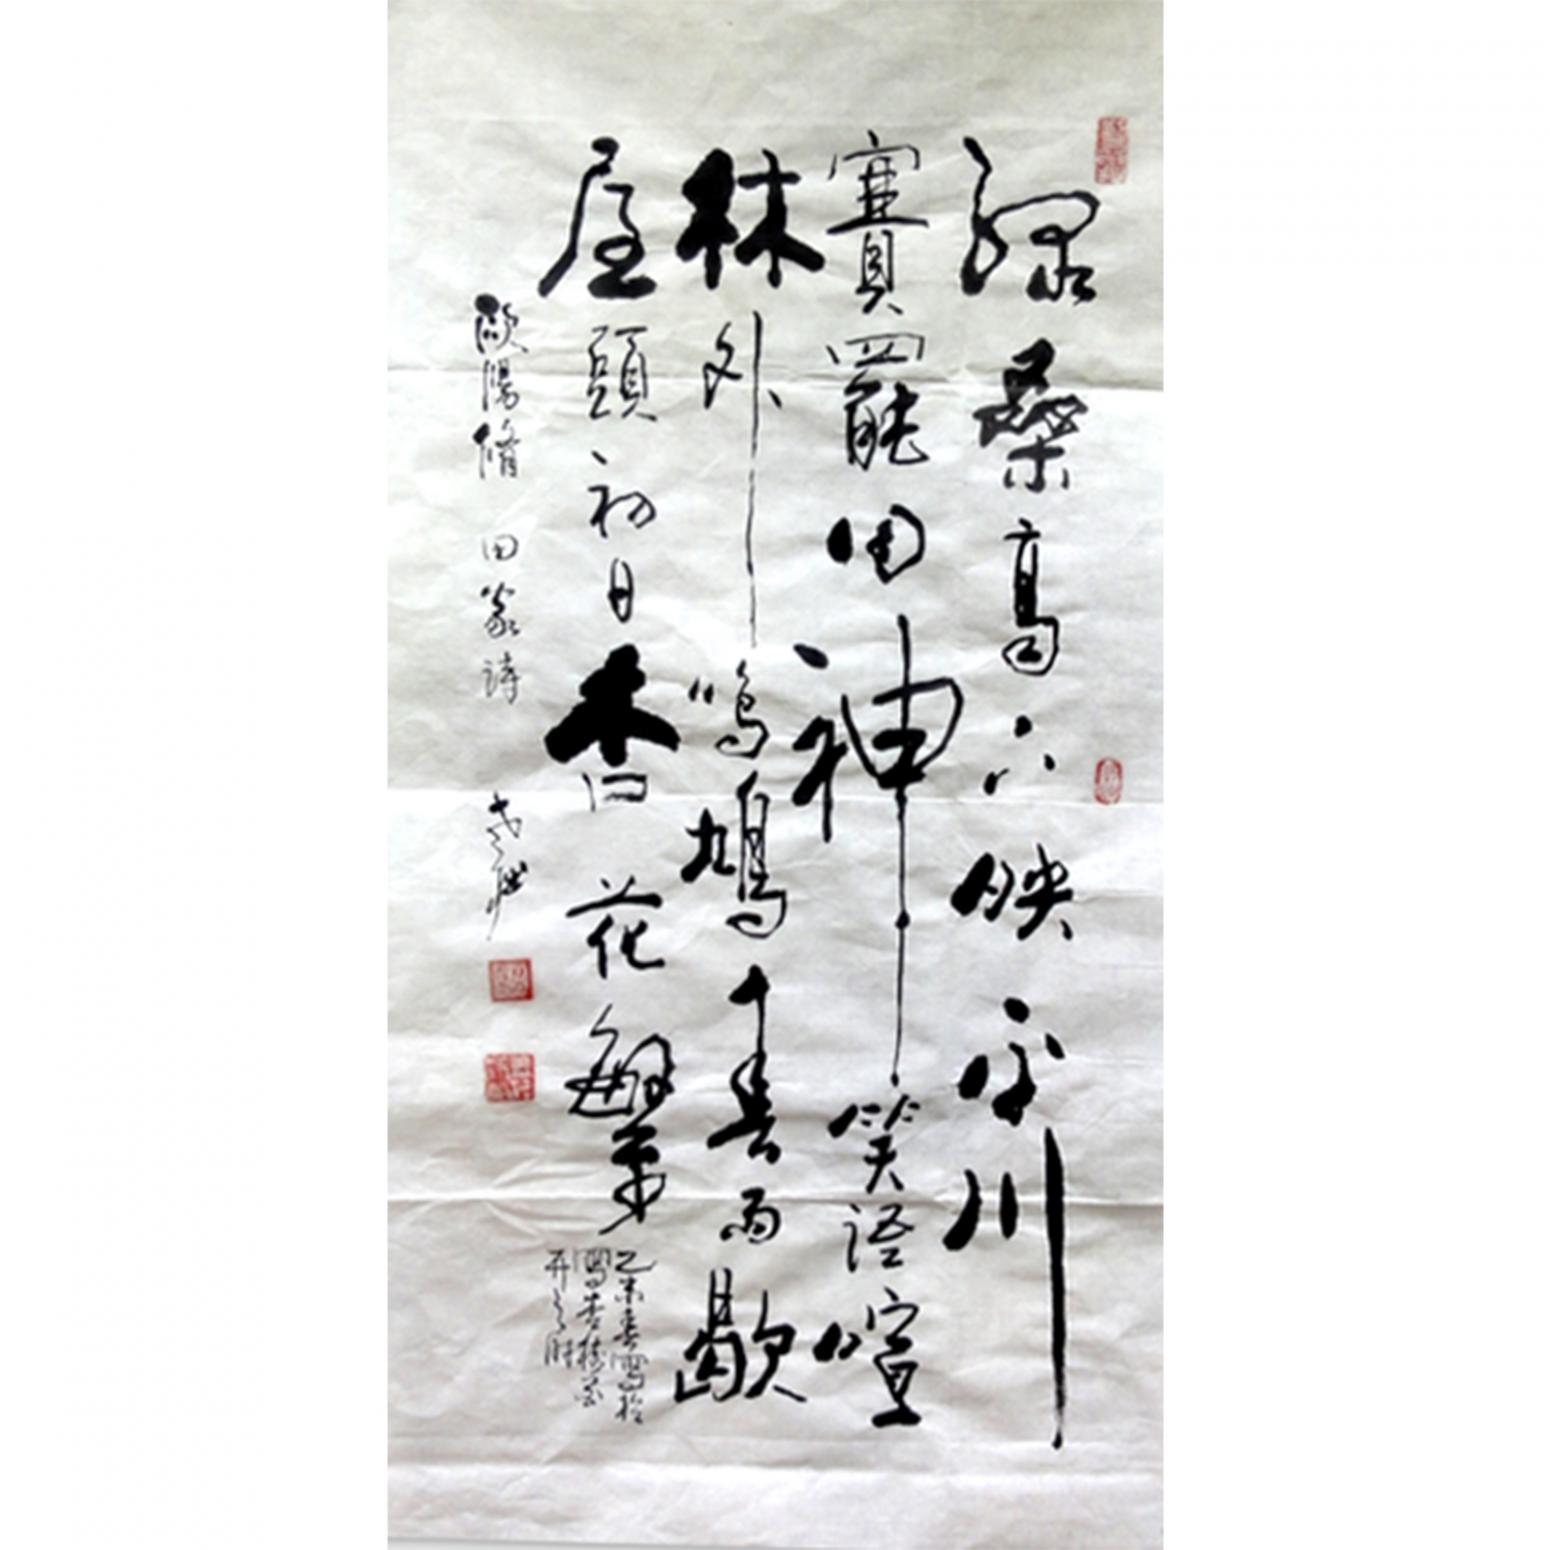 緑桑高下映平川
賽罷田神笑語喧
林外鳴鳩春雨歇
屋頭初日杏花繁
乙未春寫於
歐陽脩 田家詩